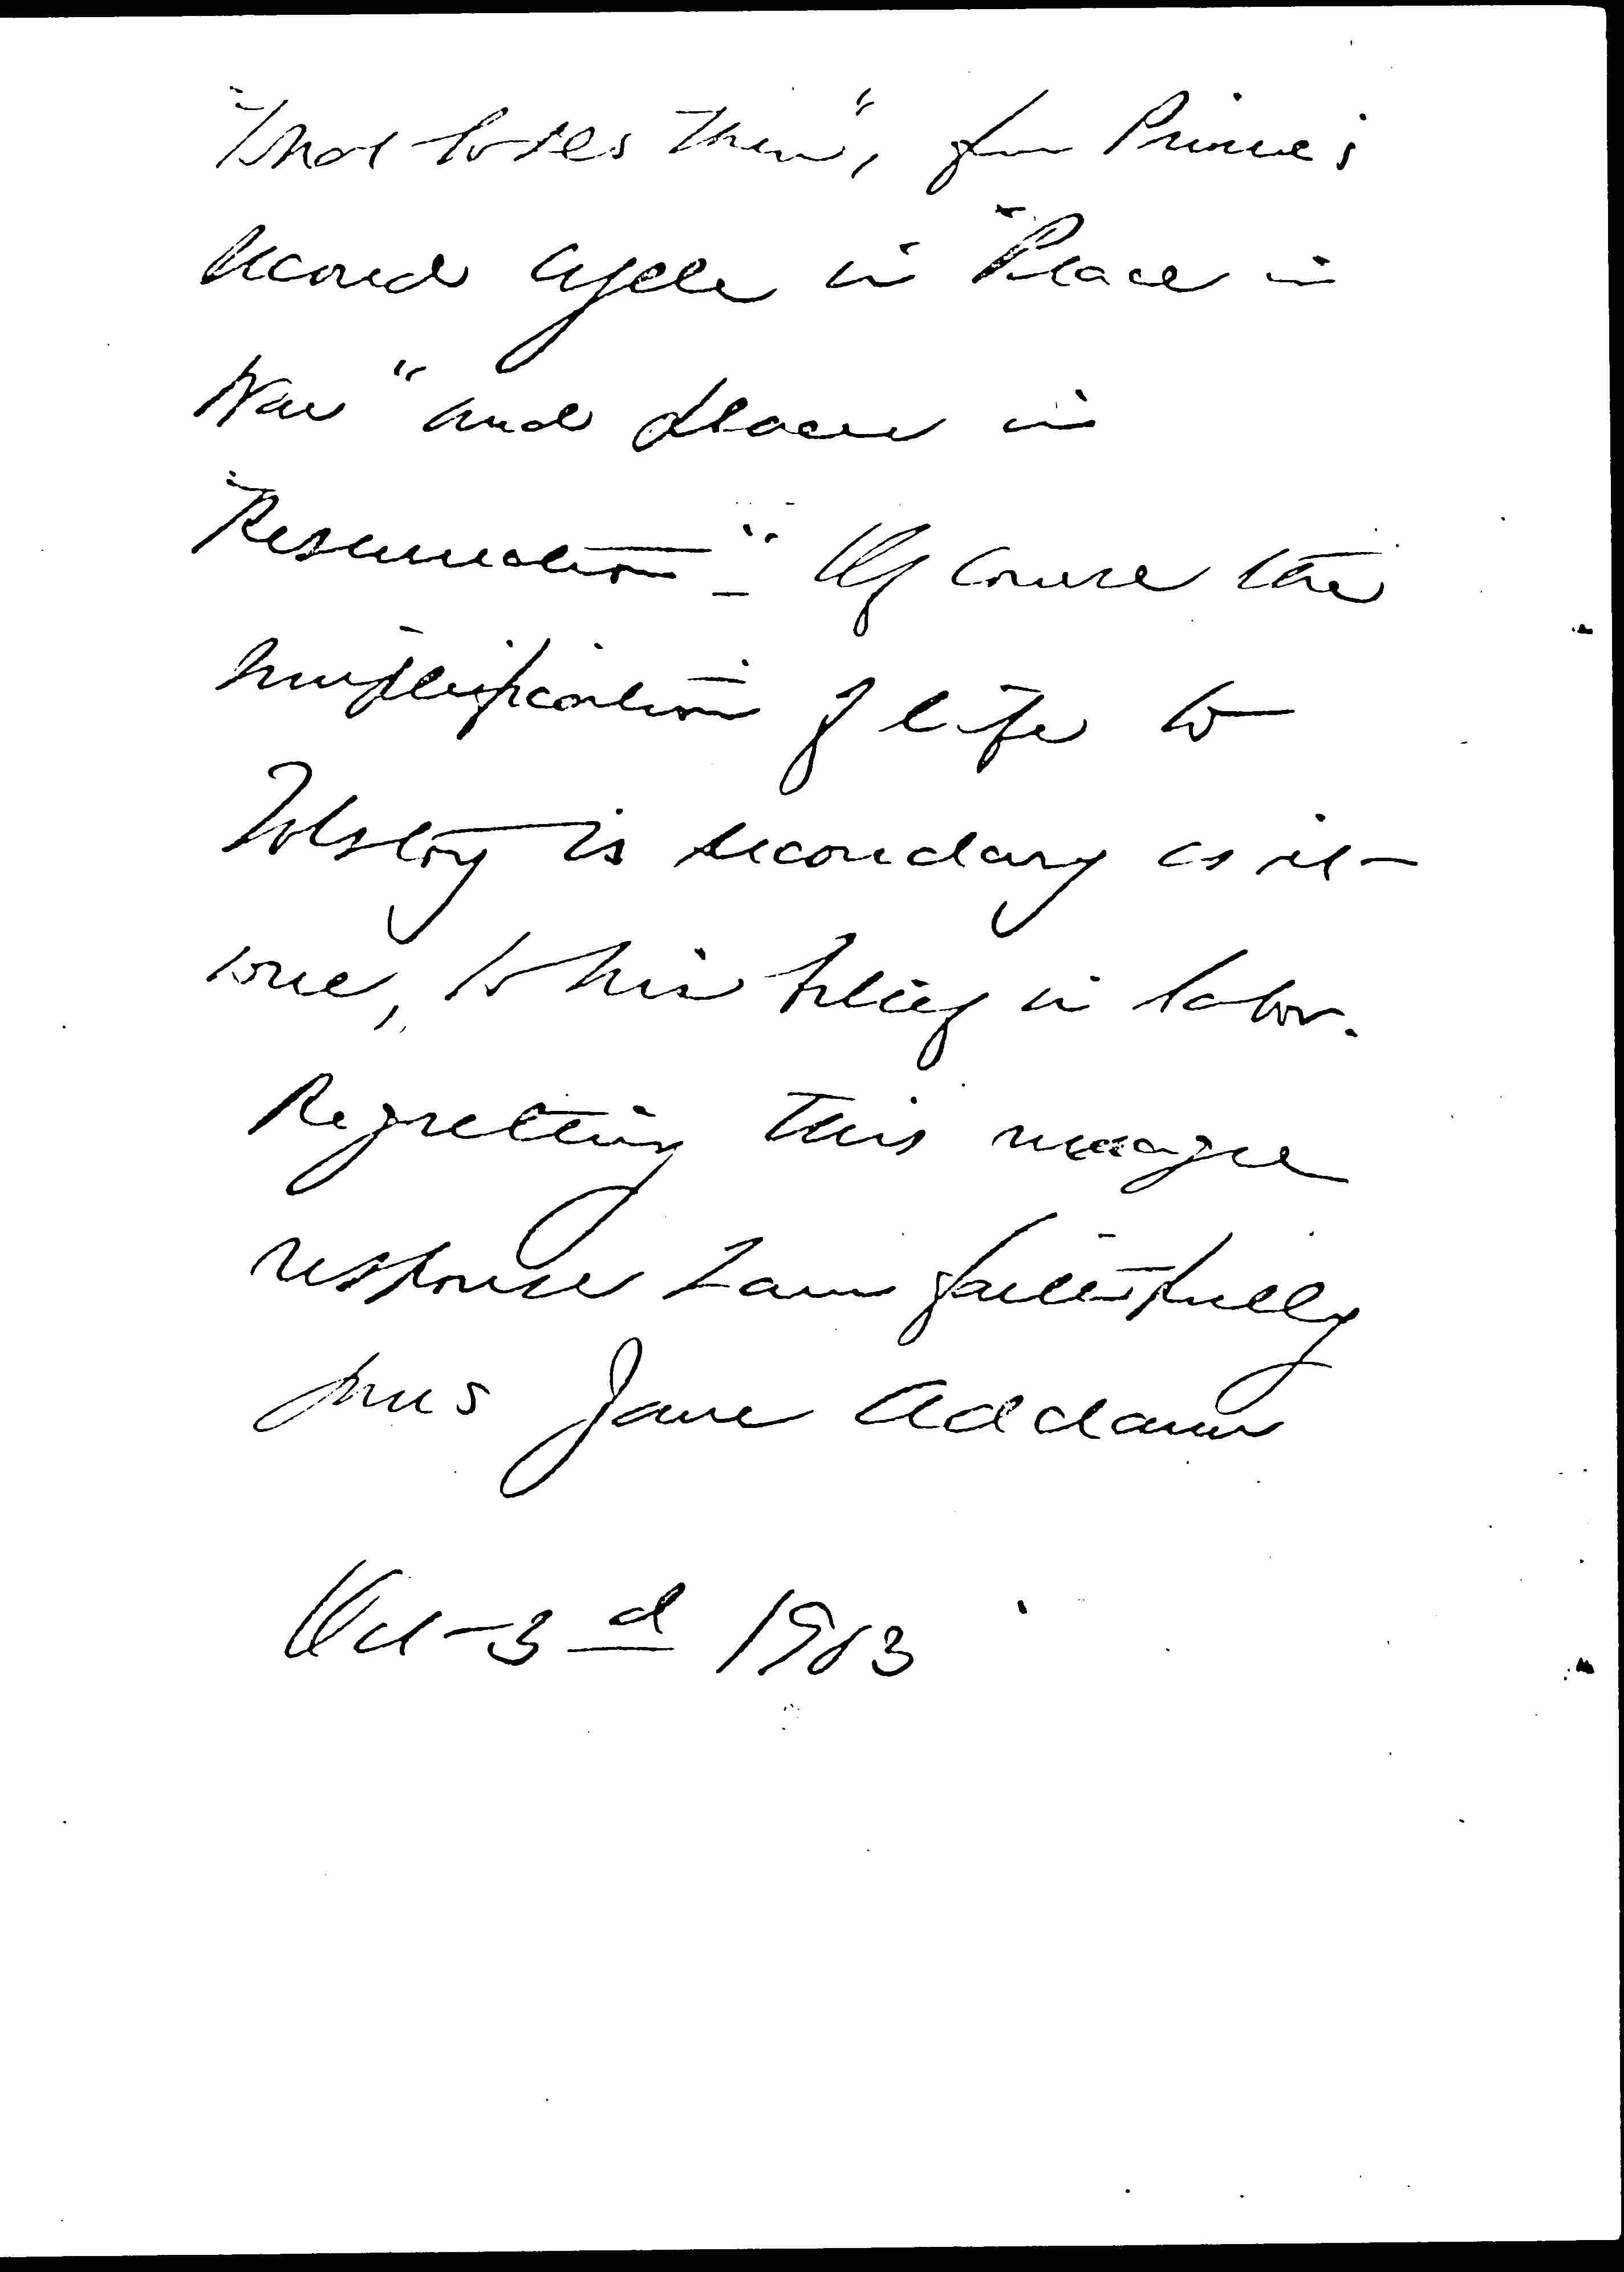 "What to Do Then", from Prince's
second cycle in "Peace in
War" and places in
"Resurrection". Of course the
simplification of life to
Tolstoy is secondary as it
were, to his belief in labor.
Regretting this meagre
response I am faithfully
yours Jane Addams
Oct 3d 1903